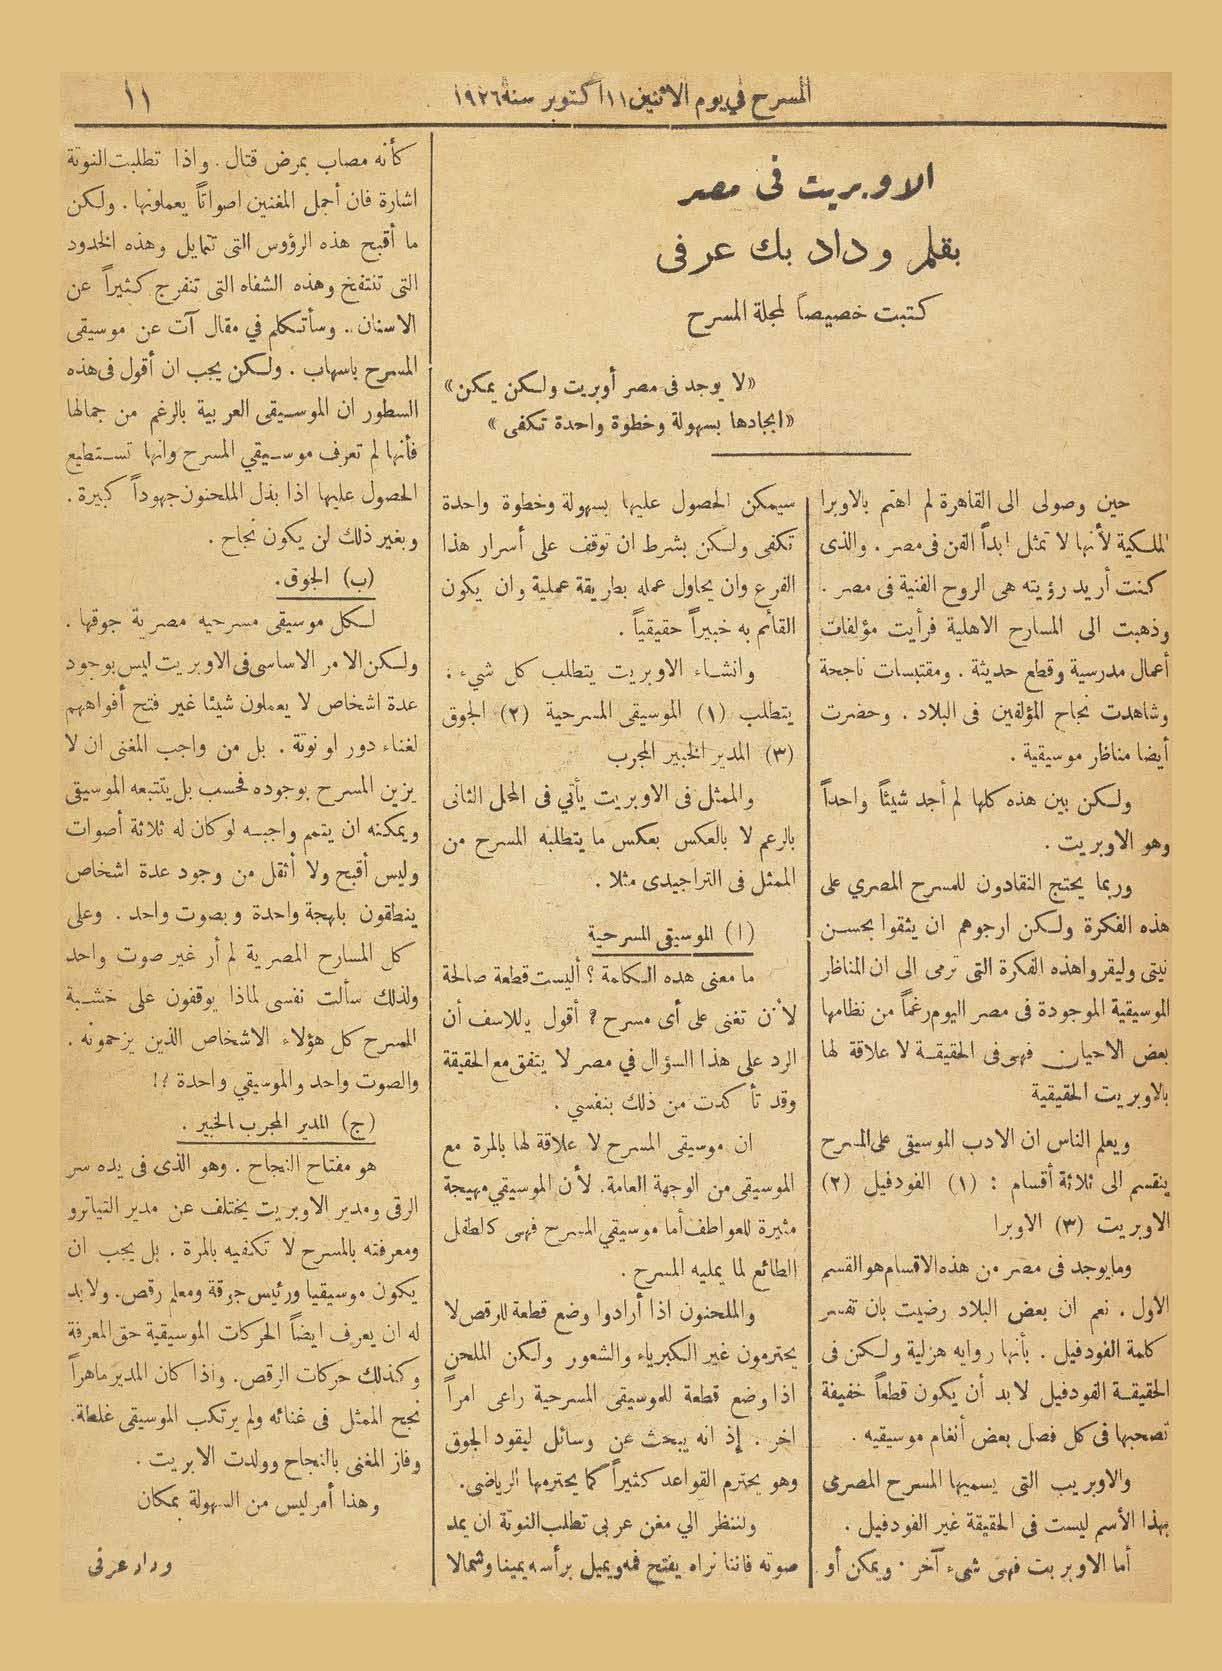 المسرح في يوم الاثنين ١١ اكتوبر سنة ١٩٢٦
١١
الاوبريت فى مصر
بقلم وداد بك عرفى
كتبت خصيصاً لمجلة المسرح
«لا يوجد فى مصر أوبريت ولكن يمكن»
«ايجادها بسهولة وخطوة واحدة تكفى»
حين وصولى الى القاهرة لم اهتم بالاوبرا
الملكية لأنها لا تمثل ابداً الفن فى مصر . والذى
كنت أريد رؤيته هى الروح الفنية فى مصر .
وذهبت الى المسارح الاهلية فرأيت مؤلفات
أعمال مدرسية وقطع حديثة . ومقتبسات ناجحة
وشاهدت نجاح المؤلفين فى البلاد . وحضرت
أيضا مناظر موسيقية .
ولكن بين هذه كلها لم أجد شيئاً واحداً
وهو الاوبريت .
وربما يحتج النقادون للمسرح المصري على
هذه الفكرة ولكن ارجوهم ان يثقوا بحسن
نيتى وليقروا هذه الفكرة التى ترمى الى ان المناظر
الموسيقية الموجودة فى مصر اليوم رغماً من نظامها
بعض الاحيان فهى فى الحقيقة لا علاقة لها
بالاوبريت الحقيقية
ويعلم الناس ان الادب الموسيقى على المسرح
ينقسم الى ثلاثة أقسام : (١) الفودفيل (٢)
الاوبريت (٣) الاوبرا
ومايوجد فى مصر من هذه الاقسام هو القسم
الاول . نعم ان بعض البلاد رضيت بان تفسر
كلمة الفودفيل . بأنها روايه هزلية ولكن فى
الحقيقة الفودفيل لا بد أن يكون قطعاً خفيفة
تصحبها فى كل فصل بعض أنغام موسيقيه .
والاوبريب التى يسميها المسرح المصرى
بهذا الأسم ليست فى الحقيقة غير الفودفيل .
أما الاوبريت فهى شىء آخر . ويمكن أو
سيمكن الحصول عليها بسهولة وخطوة واحدة
تكفى ولكن بشرط ان توقف على أسرار هذا
الفرع وان يحاول عمله بطريقة عملية وان يكون
القائم به خبيراً حقيقياً .
وانشاء الاوبريت يتطلب كل شيء .
يتطلب (١) الموسيقى المسرحية (٢) الجوق
(٣) المدير الخبير المجرب
والممثل فى الاوبريت يأتي فى المحل الثانى
بالرغم لا بالعكس بعكس ما يتطلبه المسرح من
الممثل فى التراجيدى مثلا .
(ا) الموسيقى المسرحية
ما معنى هذه الكلمة ؟ أليست قطعة صالحة
لأن تغنى على أى مسرح ؟ أقول ياللاسف أن
الرد على هذا السؤال في مصر لا يتفق مع الحقيقة
وقد تأكدت من ذلك بنفسي .
ان موسيقى المسرح لا علاقة لها بالمرة مع
الموسيقى من الوجهة العامة. لأن الموسيقي مهيجة
مثيرة للعواطف أما موسيقي المسرح فهى كالطفل
الطائع لما يمليه المسرح .
والملحنون اذا أرادوا وضع قطعة للرقص لا
يحترمون غير الكبرياء والشعور ولكن الملحن
اذا وضع قطعة للموسيقى المسرحية راعى امراً
اخر . إذ انه يبحث عن وسائل ليقود الجوق
وهو يحترم القواعد كثيراً كما يحترمها الرياضى.
ولننظر الي مغن عربى تطلب النوتة ان يمد
صوته فاننا نراه يفتح فمه ويميل برأسه يمينا وشمالا
كأنه مصاب بمرض قتال . واذا تطلبت النوتة
اشارة فان أجمل المغنين اصواتاً يعملونها . ولكن
ما أقبح هذه الرؤوس التى تتمايل وهذه الخدود
التى تنتفخ وهذه الشفاه التى تنفرج كثيراً عن
الاسنان .. وسأتكلم في مقال آت عن موسيقى
المسرح باسهاب . ولكن يجب ان أقول فى هذه
السطور ان الموسيقى العربية بالرغم من جمالها
فأنها لم تعرف موسيقي المسرح وانها تستطيع
الحصول عليها اذا بذل الملحنون جهوداً كبيرة .
وبغير ذلك لن يكون نجاح .
(ب) الجوق.
لكل موسيقى مسرحيه مصرية جوقها .
ولكن الامر الاساسى فى الاوبريت ليس بوجود
عدة اشخاص لا يعملون شيئا غير فتح أفواههم
لغناء دور او نوتة . بل من واجب المغنى ان لا
يزين المسرح بوجوده فحسب بل يتتبعه الموسيقى
ويمكنه ان يتمم واجبه لو كان له ثلاثة أصوات
وليس أقبح ولا أثقل من وجود عدة اشخاص
ينطقون بلهجة واحدة وبصوت واحد . وعلى
كل المسارح المصرية لم أر غير صوت واحد
ولذلك سألت نفسى لماذا يوقفون على خشبة
المسرح كل هؤلاء الاشخاص الذين يزحمونه .
والصوت واحد والموسيقي واحدة ؟!
(ج) المدير المجرب الخبير .
هو مفتاح النجاح . وهو الذى فى يده سر
الرقى ومدير الاوبريت يختلف عن مدير التياترو
ومعرفته بالمسرح لا تكفيه بالمرة . بل يجب ان
يكون موسيقيا ورئيس جوقة ومعلم رقص. ولابد
له ان يعرف ايضاً الحركات الموسيقية حق المعرفة
وكذلك حركات الرقص. واذا كان المدير ماهراً
نجح الممثل فى غنائه ولم يرتكب الموسيقى غلطة.
وفاز المغنى بالنجاح وولدت الابريت .
وهذا أمر ليس من السهولة بمكان
وداد عرفى